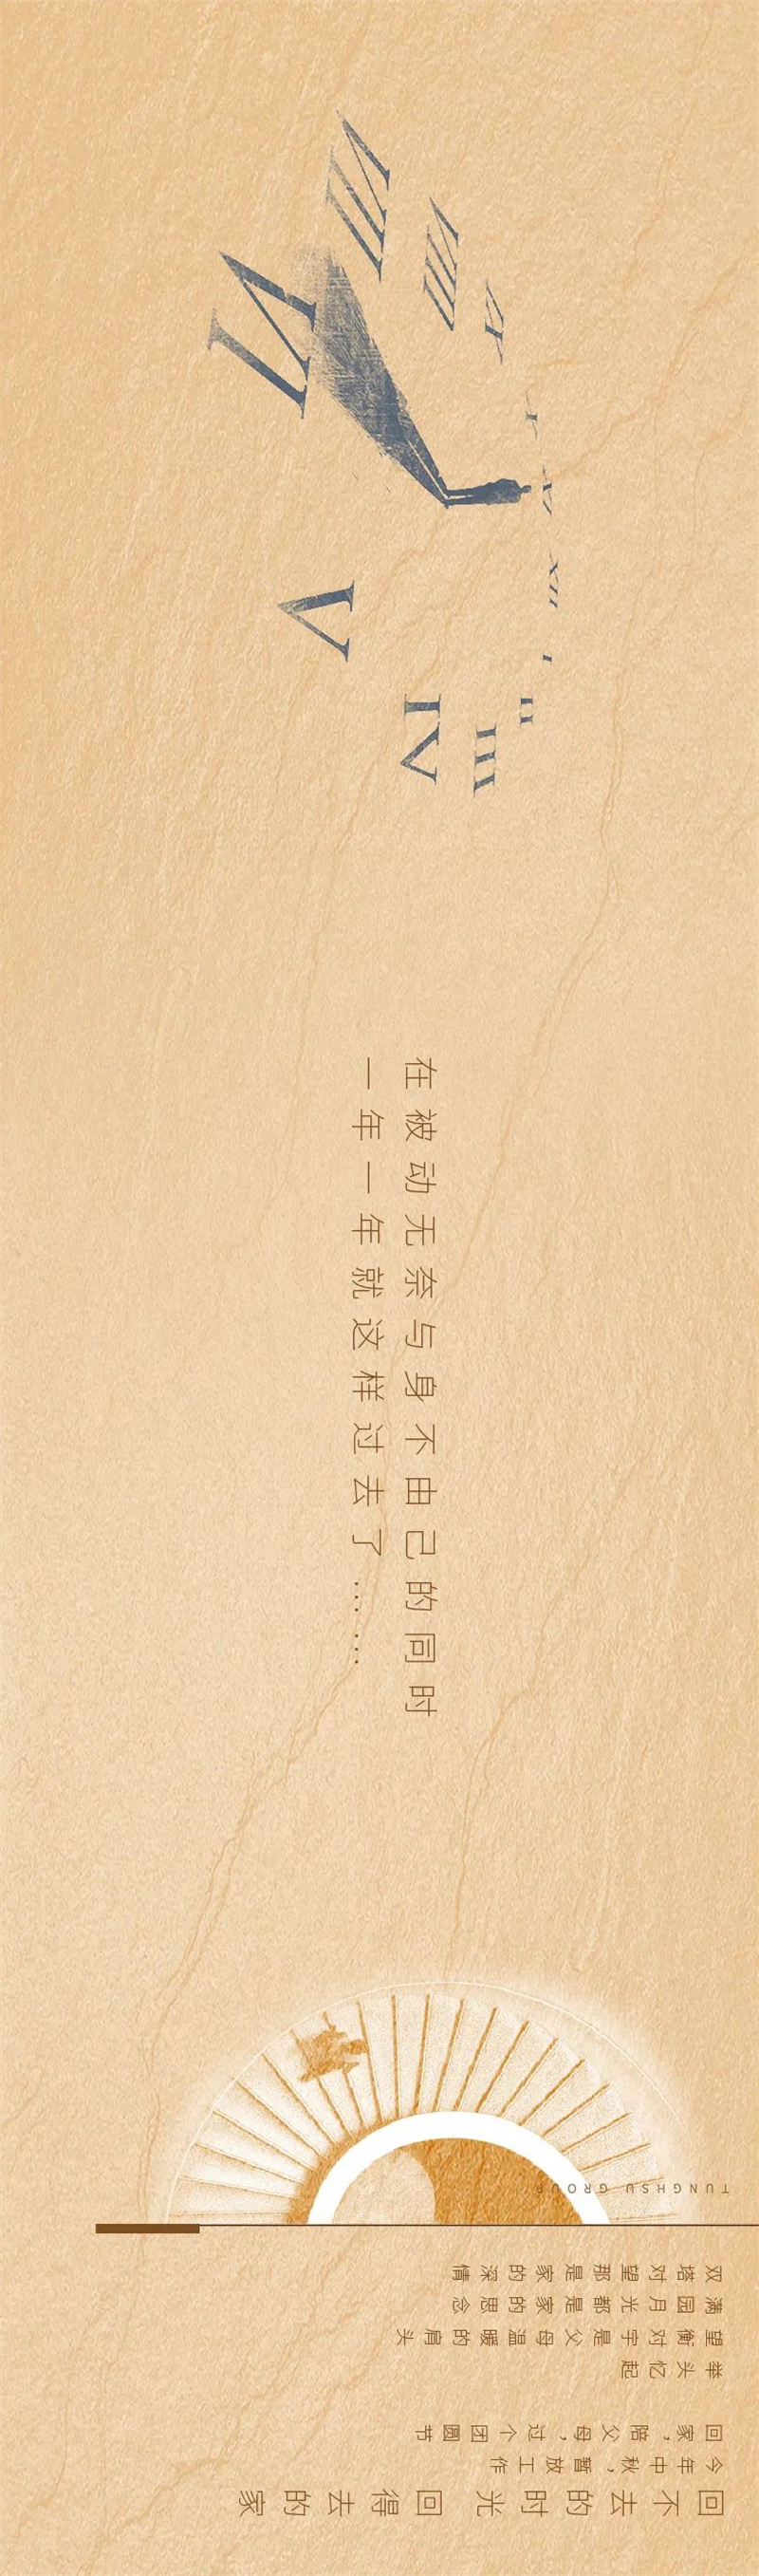 XII
I
II
III
IV
V
VI
VII
VIII
IX
X
XI
在被动无奈与身不由己的同时
一年一年就这样过去了……
回不去的时光 回得去的家
今年中秋，暂放工作
回家，陪父母，过个团圆节
举头忆起
望衡对宇是父母温暖的肩头
满园月光都是家的思念
双塔对望那是家的深情
TUNGHSU GROUP